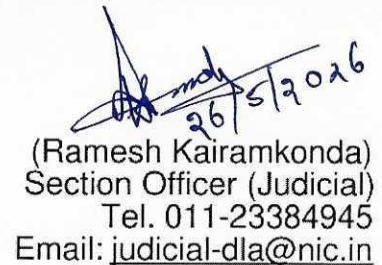 26/5/2026
(Ramesh Kairamkonda)
Section Officer (Judicial)
Tel. 011-23384945
Email: judicial-dla@nic.in